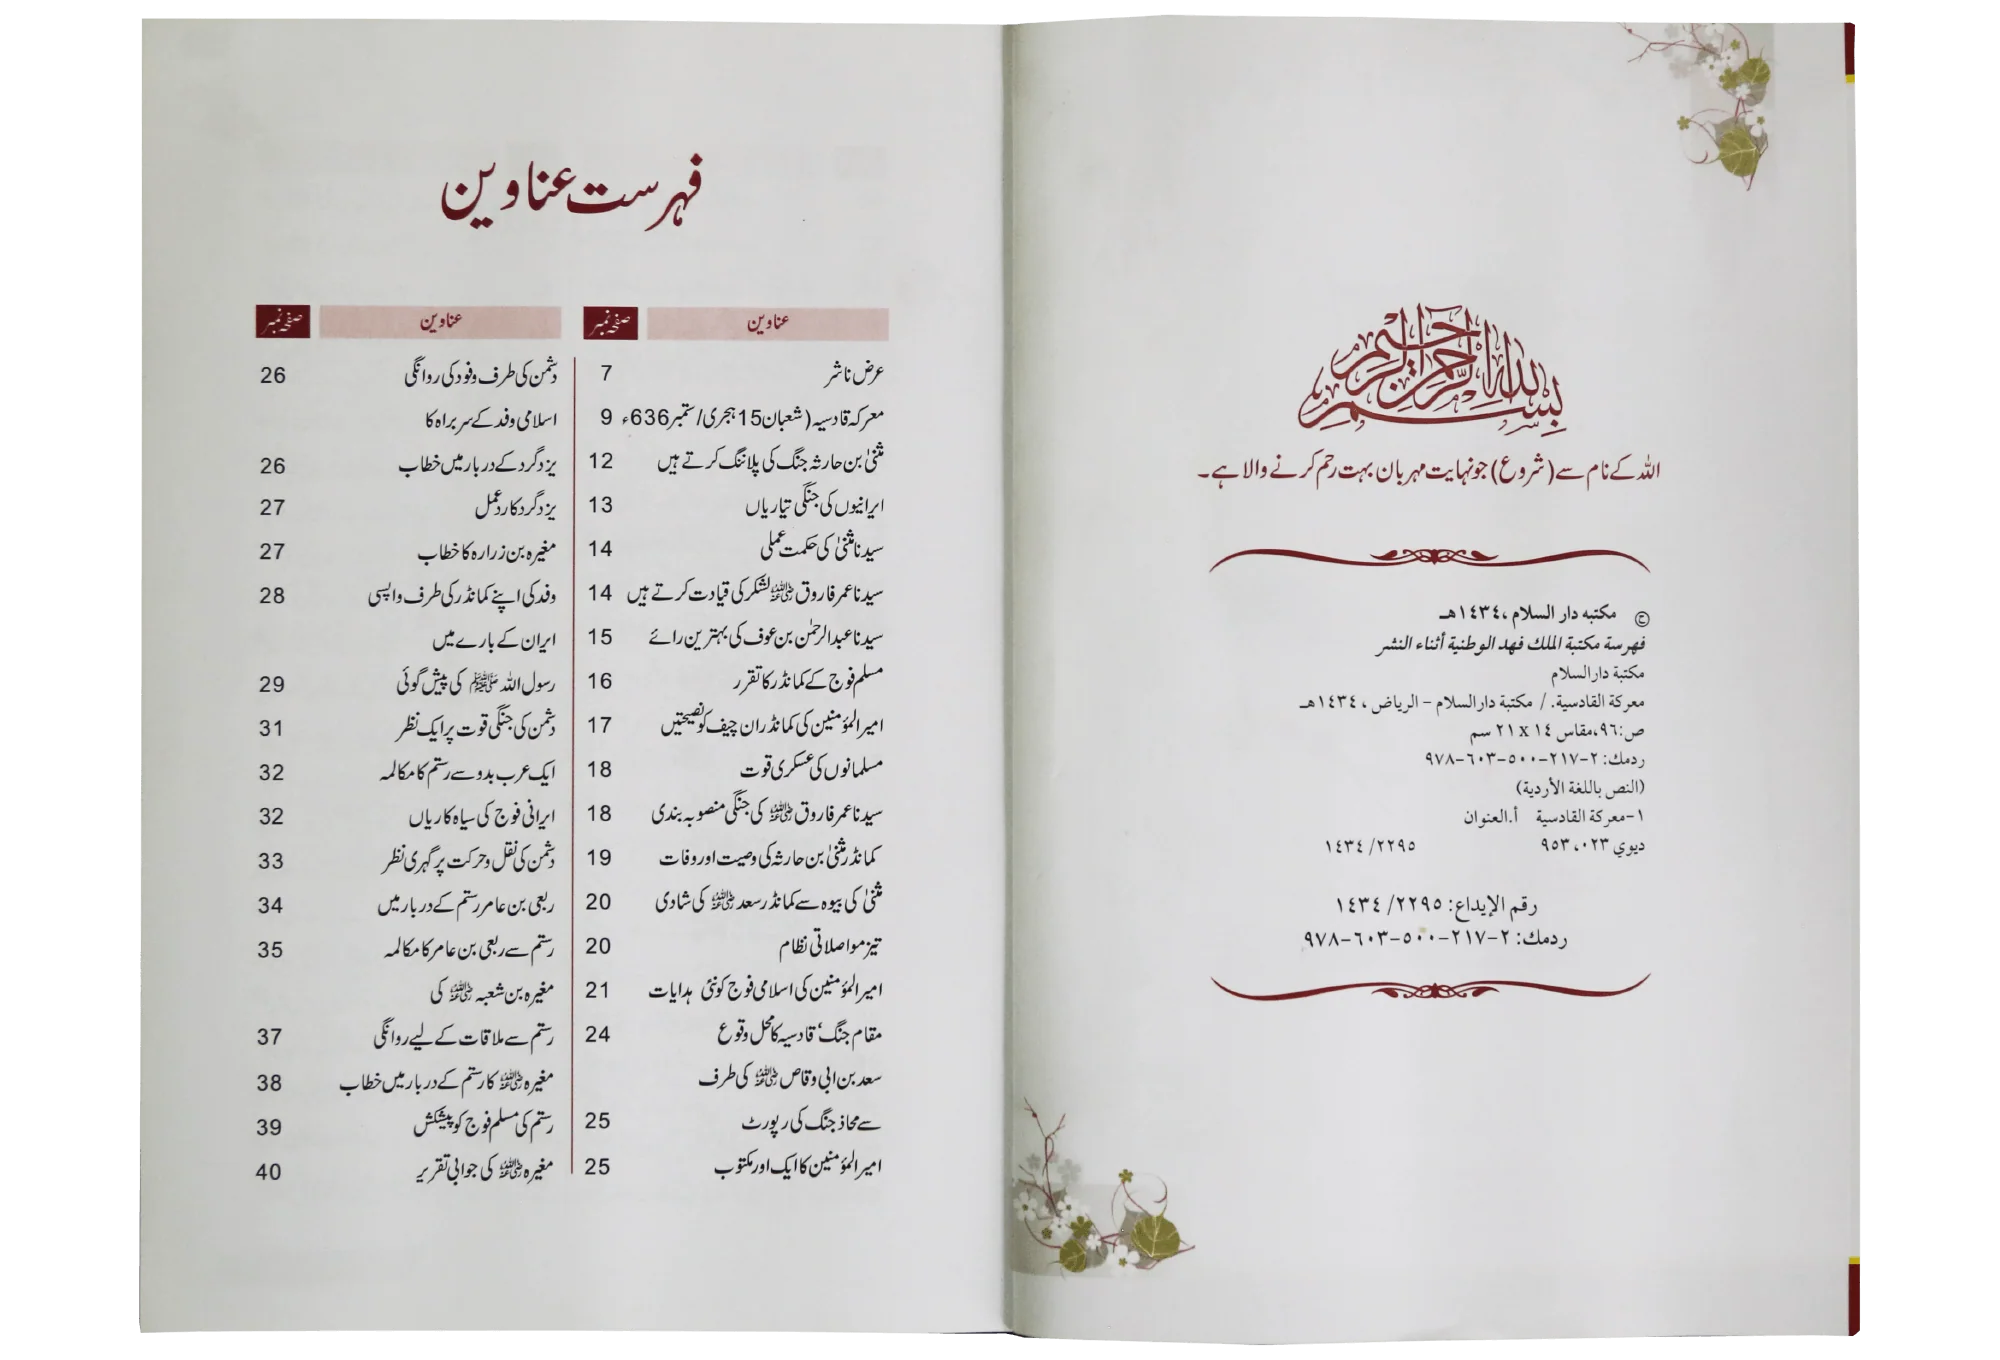 بسم الله الرحمن الرحيم
اللہ کے نام سے (شروع) جو نہایت مہربان بہت رحم کرنے والا ہے۔
ح مكتبه دار السلام ، ١٤٣٤هـ
فهرسة مكتبة الملك فهد الوطنية أثناء النشر
مكتبة دارالسلام
معركة القادسية. / مكتبة دارالسلام - الرياض ، ١٤٣٤هـ
ص:٩٦، مقاس ١٤ x ٢١ سم
ردمك: ٢-٢١٧-٥٠٠-٦٠٣-٩٧٨
(النص باللغة الأردية)
١-معركة القادسية أ.العنوان
ديوي ٩٥٣،٠٢٣ ١٤٣٤/٢٢٩٥
رقم الإيداع: ١٤٣٤/٢٢٩٥
ردمك: ٢-٢١٧-٥٠٠-٦٠٣-٩٧٨
فہرست عناوین
عناوین صفحہ نمبر
عرض ناشر 7
معرکہ قادسیہ (شعبان 15 ہجری/ستمبر 636ء 9
مثنیٰ بن حارثہ جنگ کی پلاننگ کرتے ہیں 12
ایرانیوں کی جنگی تیاریاں 13
سیدنا مثنیٰ کی حکمت عملی 14
سیدنا عمر فاروق رضی اللہ عنہ لشکر کی قیادت کرتے ہیں 14
سیدنا عبدالرحمٰن بن عوف کی بہترین رائے 15
مسلم فوج کے کمانڈر کا تقرر 16
امیر المؤمنین کی کمانڈر ان چیف کو نصیحتیں 17
مسلمانوں کی عسکری قوت 18
سیدنا عمر فاروق رضی اللہ عنہ کی جنگی منصوبہ بندی 18
کمانڈر مثنیٰ بن حارثہ کی وصیت اور وفات 19
مثنیٰ کی بیوہ سے کمانڈر سعد رضی اللہ عنہ کی شادی 20
تیز مواصلاتی نظام 20
امیر المؤمنین کی اسلامی فوج کو نئی ہدایات 21
مقام جنگ ‘ قادسیہ کا محل وقوع 24
سعد بن ابی وقاص رضی اللہ عنہ کی طرف
سے محاذ جنگ کی رپورٹ 25
امیر المؤمنین کا ایک اور مکتوب 25
عناوین صفحہ نمبر
دشمن کی طرف وفود کی روانگی 26
اسلامی وفد کے سربراہ کا
یزدگرد کے دربار میں خطاب 26
یزدگرد کا ردعمل 27
مغیرہ بن زرارہ کا خطاب 27
وفد کی اپنے کمانڈر کی طرف واپسی 28
ایران کے بارے میں
رسول اللہ ﷺ کی پیش گوئی 29
دشمن کی جنگی قوت پر ایک نظر 31
ایک عرب بدو سے رستم کا مکالمہ 32
ایرانی فوج کی سیاہ کاریاں 32
دشمن کی نقل و حرکت پر گہری نظر 33
ربعی بن عامر رستم کے دربار میں 34
رستم سے ربعی بن عامر کا مکالمہ 35
مغیرہ بن شعبہ رضی اللہ عنہ کی
رستم سے ملاقات کے لیے روانگی 37
مغیرہ رضی اللہ عنہ کا رستم کے دربار میں خطاب 38
رستم کی مسلم فوج کو پیشکش 39
مغیرہ رضی اللہ عنہ کی جوابی تقریر 40